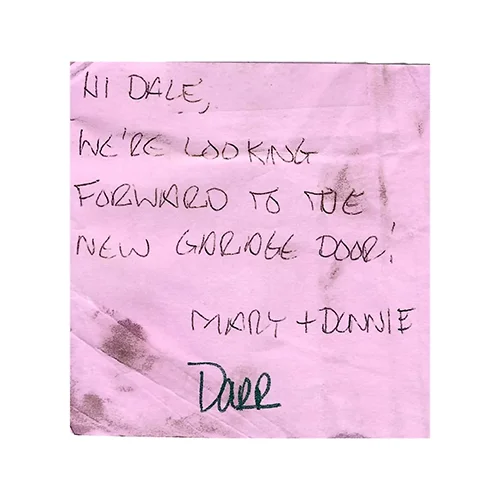 HI DALE,
WE'RE LOOKING
FORWARD TO THE
NEW GARAGE DOOR!
MARY + DONNIE
DARR